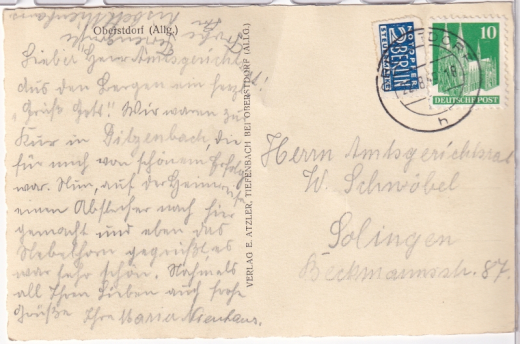 Oberstdorf (Allg.)
Lieber Herr Amtsgerichts
aus den Bergen ein herzl.
"Grüß Gott"! Wir waren zu
Kur in Ditzenbach, die
für mich von schönem Erfolg
war. Nun, auf der Heimreise
einen Abstecher nach hier
gemacht und eben das
Nebelhorn gegrüßt, es
war sehr schön. Nochmals
all Ihren Lieben auch frohe
Grüße Ihre Maria
VERLAG E. ATZLER, TIEFENBACH BEI OBERSTDORF (ALLG.)
NOTOPFER
2 BERLIN
STEUERMARKE
10
DEUTSCHE POST
h
Herrn Amtsgerichtsrat
W. Schwöbel
Solingen
Beckmannsstr. 87.